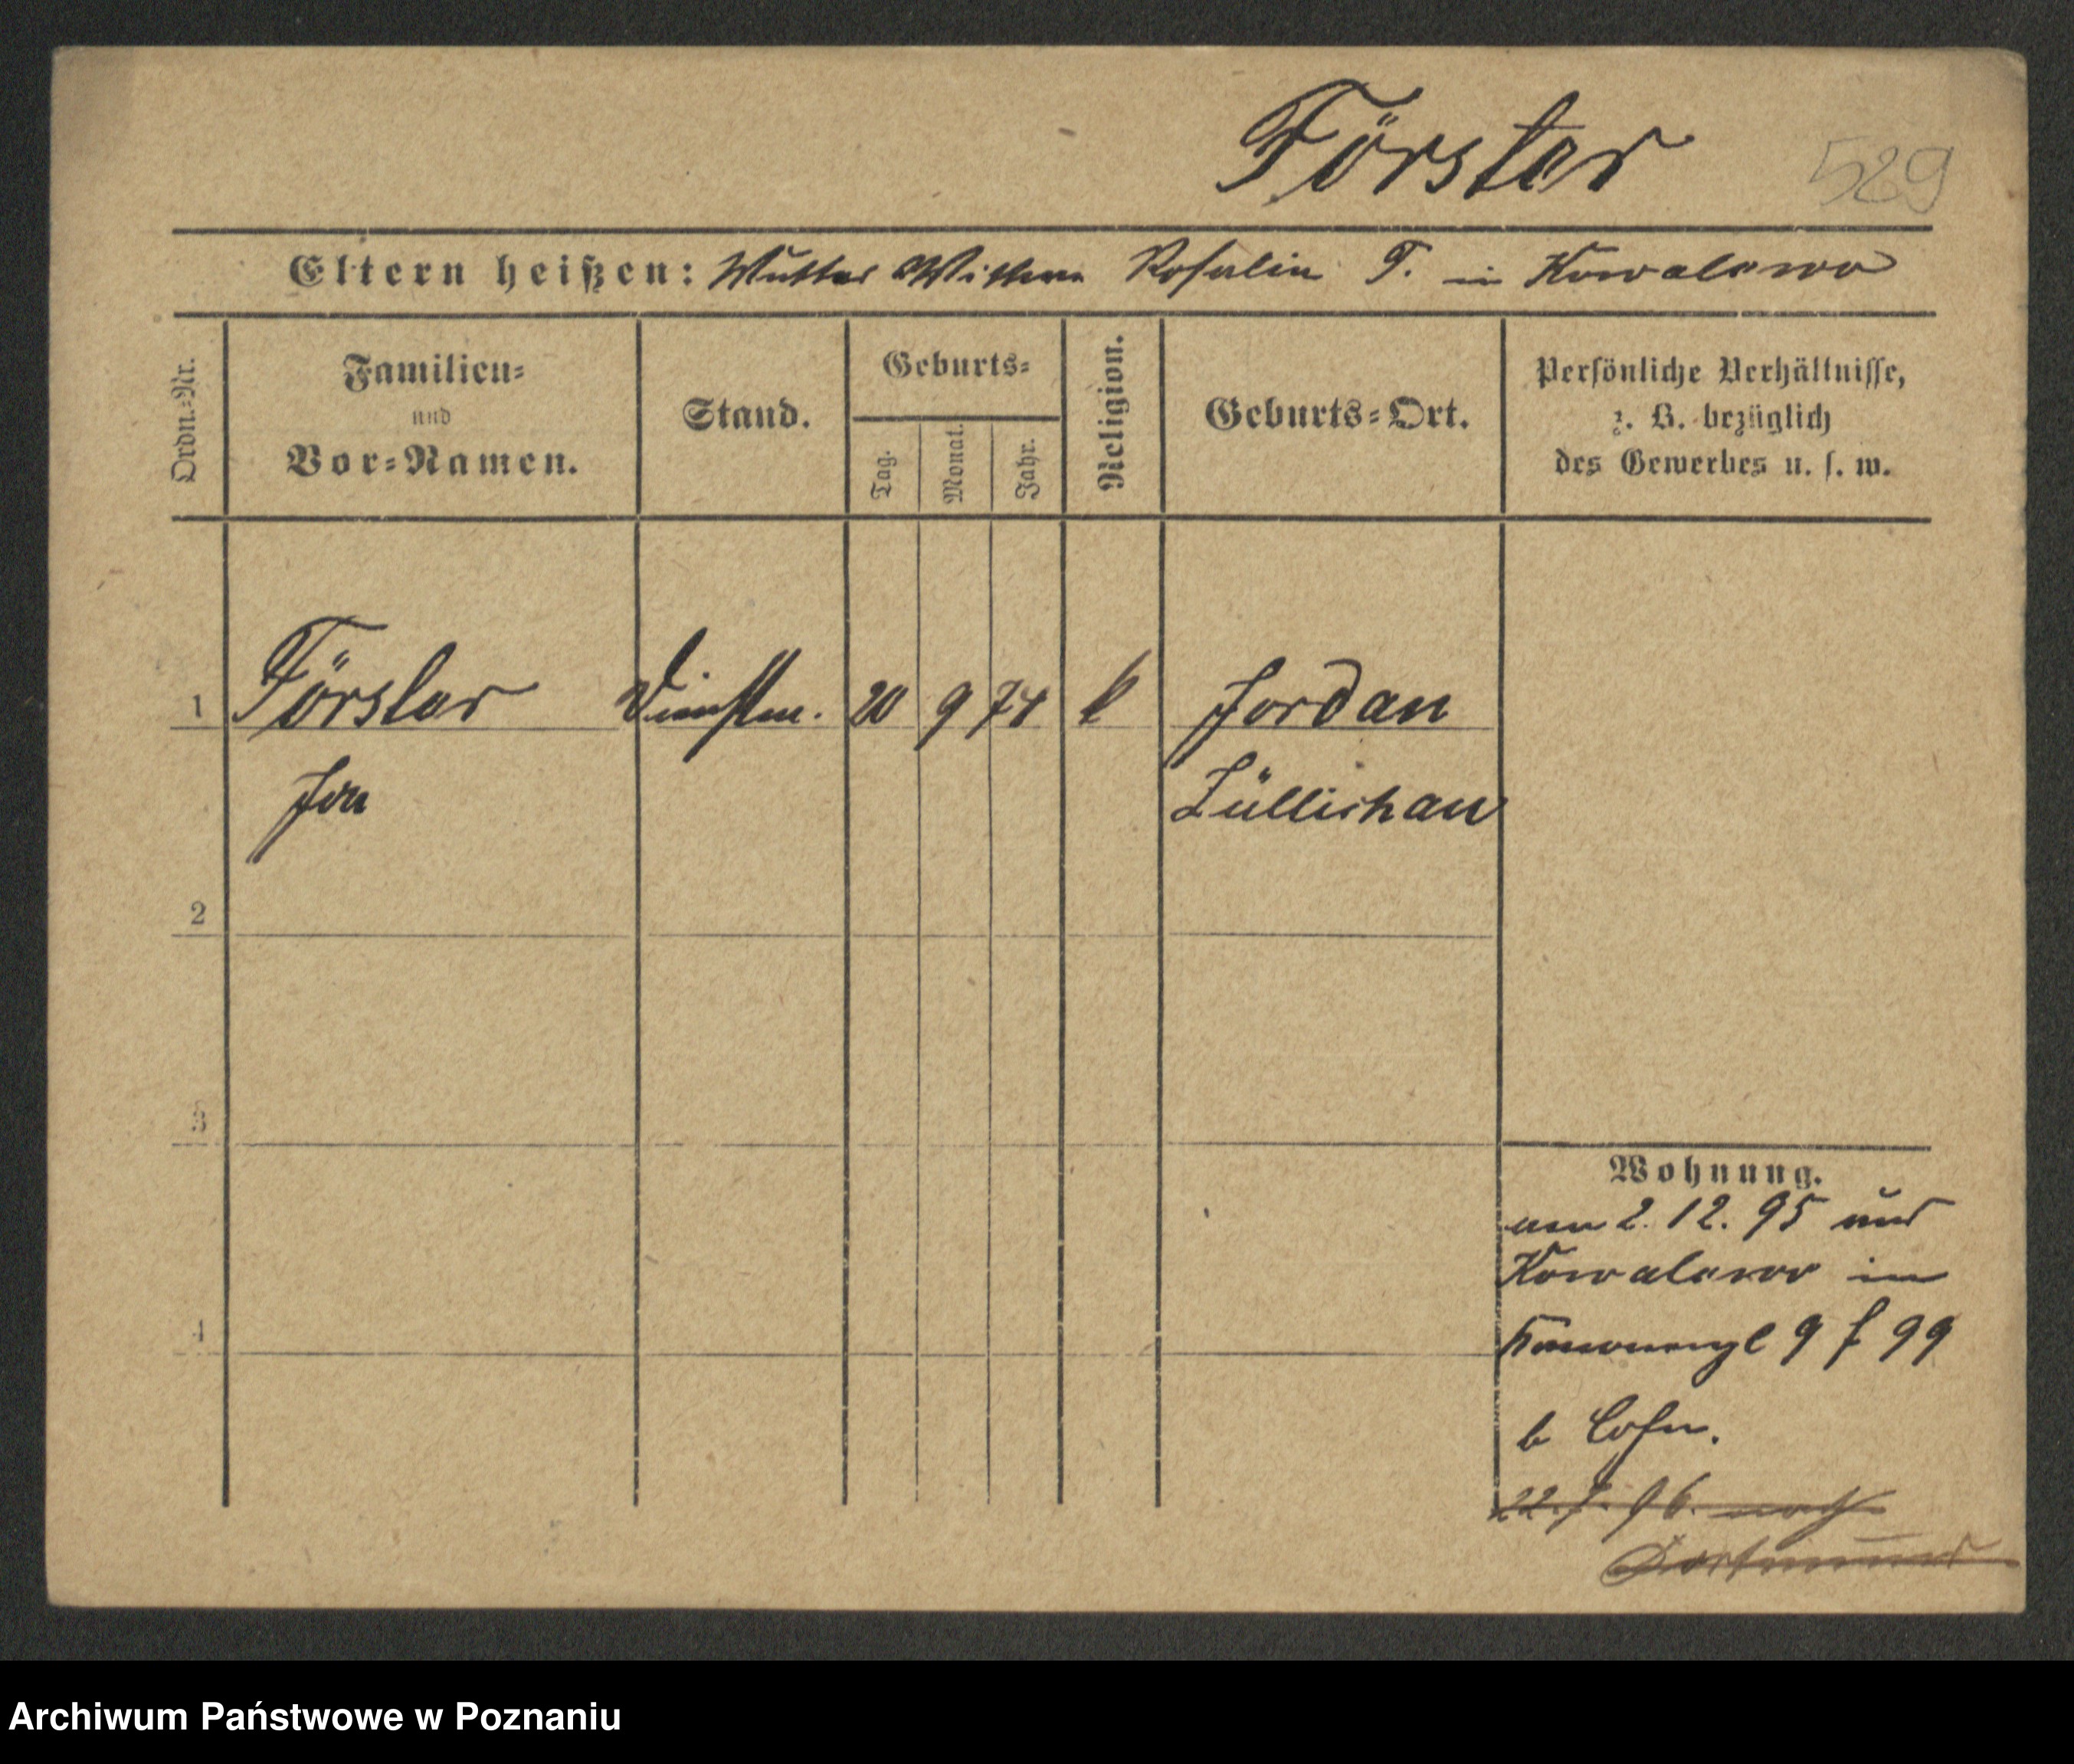 Förster 529
Eltern heißen: Mutter Wittwe Rosalie F. in Kowalewo
Ordn.-Nr.
Familien-
und
Vor-Namen.
Stand.
Geburts-
Tag.
Monat.
Jahr.
Religion.
Geburts-Ort.
Persönliche Verhältnisse,
z. B. bezüglich
des Gewerbes u. s. w.
1 Förster 20 9 74 k Jordan
Züllichau
2
3
4
Wohnung.
am 2. 12. 95 aus
Kowalewo in
9 f 99
b Cohn.
22. 7. 96. nach
Dortmund
Archiwum Państwowe w Poznaniu